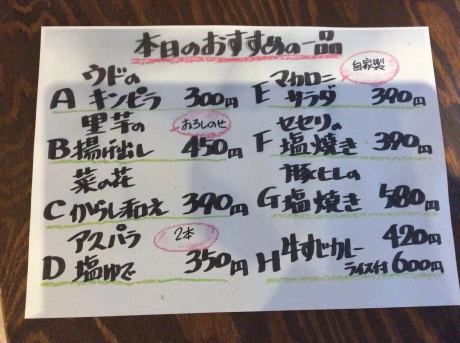 本日のおすすめの一品
ウドの
A キンピラ 300円
里芋の おろしのせ
B 揚げ出し 450円
菜の花
C からし和え 390円
アスパラ 2本
D 塩ゆで 350円
マカロニ 自家製
E サラダ 390円
セセリの
F 塩焼き 390円
豚ヒレの
G 塩焼き 580円
H 牛すじカレー 420円
ライス付 600円